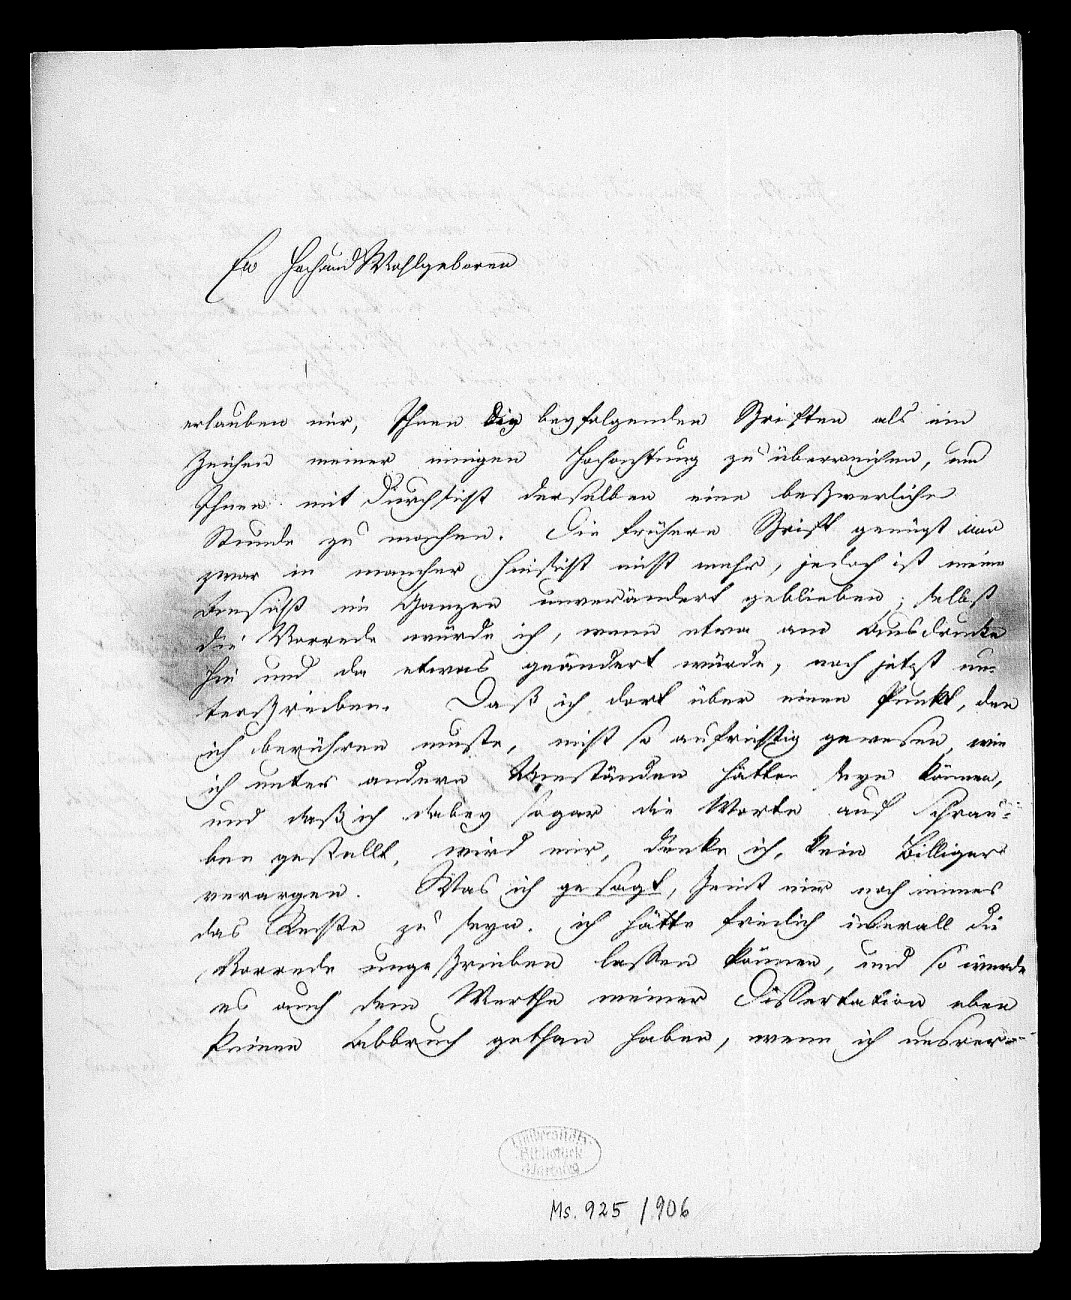 Ew Hoch und Wohlgeboren
erlauben mir, Ihnen die beyfolgenden Schriften als ein
Zeichen meiner innigen Hochachtung zu überreichen, um
Ihnen mit Durchsicht derselben eine beschwerliche
Stunde zu machen. Die frühere Schrift genügt mir
zwar in mancher Hinsicht nicht mehr, jedoch ist meine
Ansicht im Ganzen unverändert geblieben; selbst
die Vorrede würde ich, wenn etwa am Ausdrucke
hie und da etwas geändert würde, noch jetzt un-
terschreiben. Daß ich dort über einen Punkt, den
ich berühren muste, nicht so aufrichtig gewesen, wie
ich unter andern Umständen hätte seyn können,
und daß ich dabey sogar die Worte auf Schrau-
ben gestellt, wird mir, denke ich, kein Billiger
verargen. Was ich gesagt, scheint mir noch immer
das Rechte zu seyn. ich hätte freilich überall die
Vorrede ungeschrieben lassen können, und so würde
es auch dem Werthe meiner Dissertation eben
keinen Abbruch gethan haben, wenn ich
Universitäts-
Bibliothek
Marburg
Ms. 925 / 906